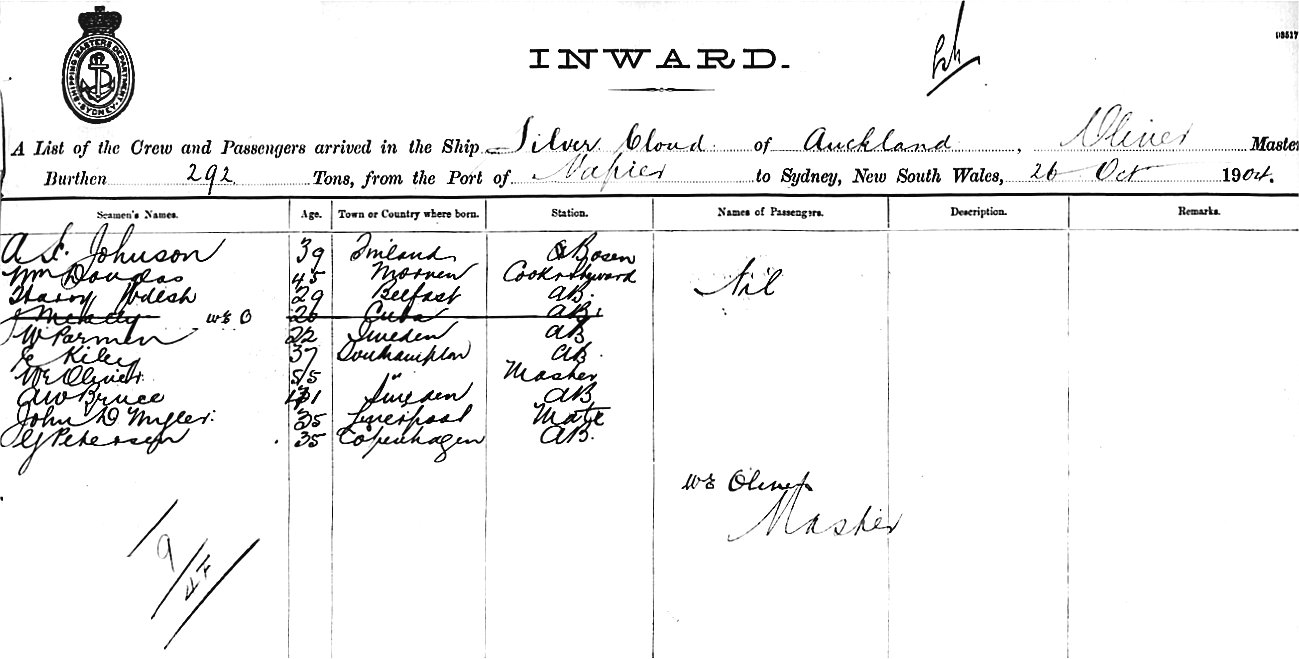 SHIPPING MASTERS DEPARTMENT
SYDNEY
INWARD.
A List of the Crew and Passengers arrived in the Ship Silver Cloud of Auckland, Oliver Master
Burthen 292 Tons, from the Port of Napier to Sydney, New South Wales, 26 Oct 1904.
Seamen's Names. Age. Town or Country where born. Station. Names of Passengers. Description. Remarks.
Johnson 39 Finland Bosen
Wm Douglas 45 Morven Cook & Steward
Harry 29 Belfast AB. Nil
WE O 26 Cuba AB.
W 22 Sweden AB
E Kiley 37 Southampton AB.
WE Oliver 55 " Master
AW Bruce 31 Sweden AB
John D 35 Liverpool Mate
Petersen 35 Copenhagen AB.
WE Oliver
Master
9